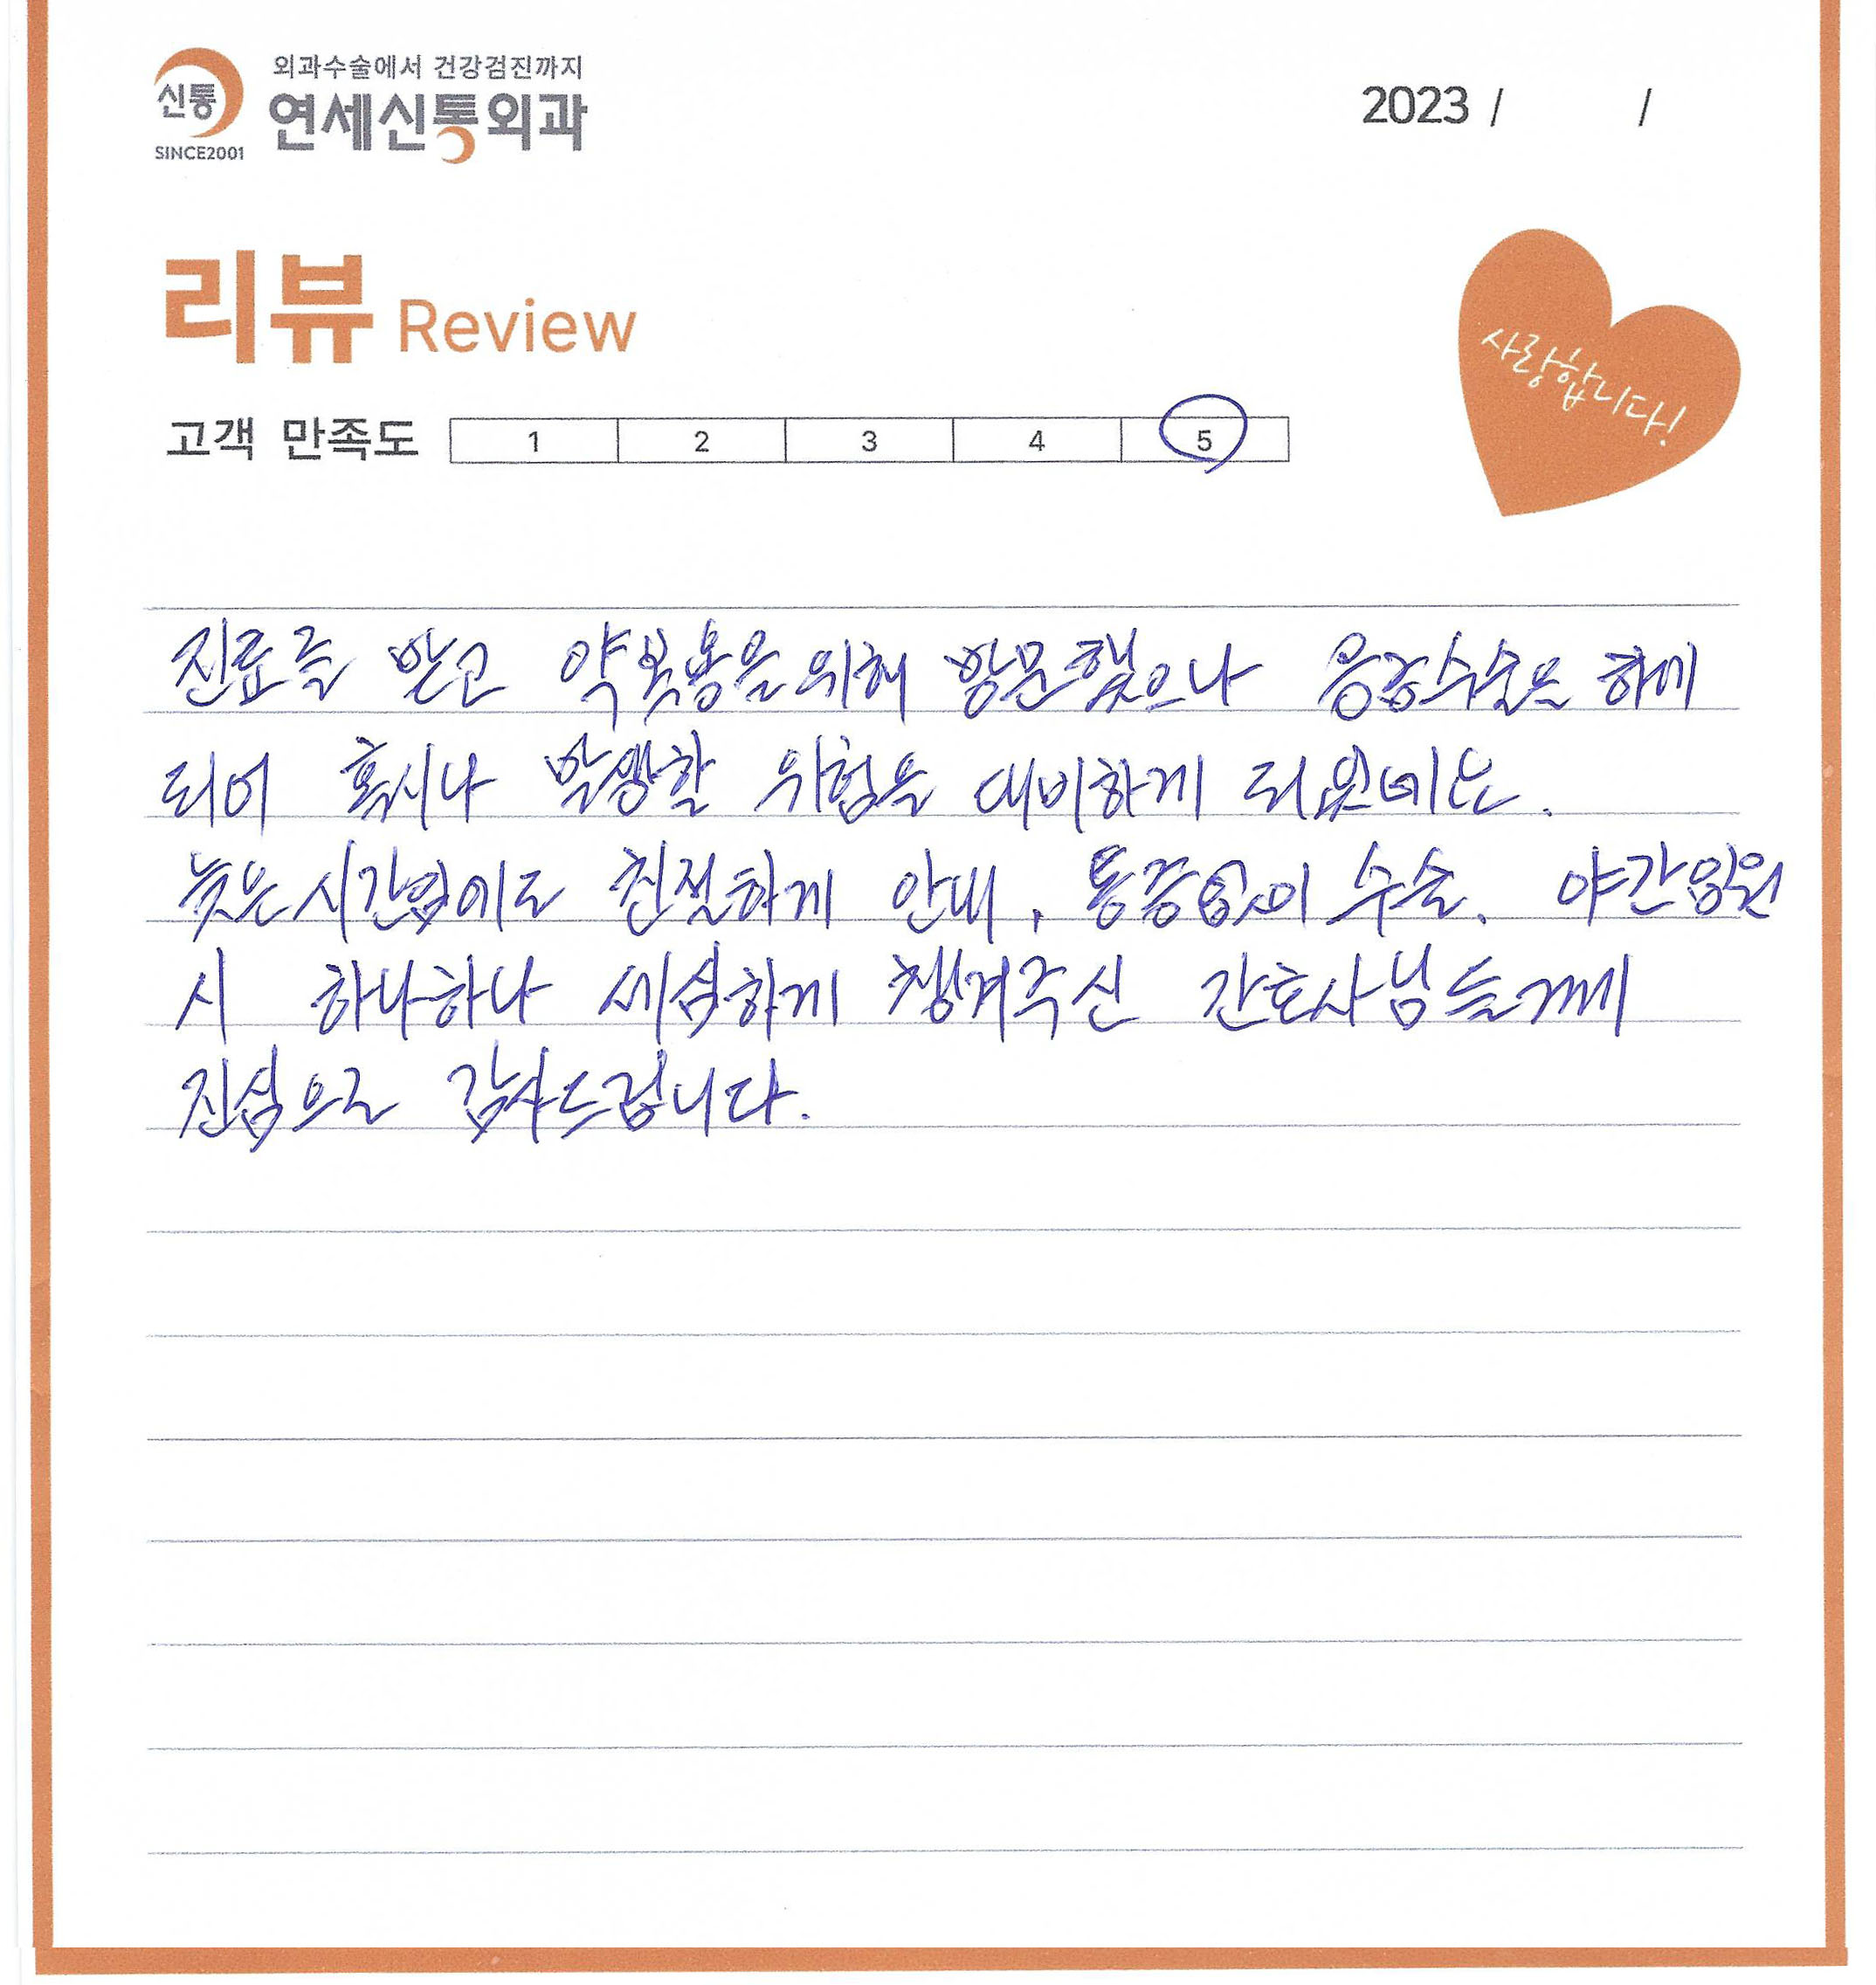 외과수술에서 건강검진까지
신통
연세신통외과
SINCE2001
2023 / /
리뷰 Review
사랑합니다!
고객 만족도 1 2 3 4 5
진료를 받고 약복용을 위해 방문했으나 응급수술을 하게
되어 혹시나 발생할 위험을 대비하게 되었네요.
늦은 시간임에도 친절하게 안내, 통증없이 수술. 야간입원
시 하나하나 세심하게 챙겨주신 간호사님들께
진심으로 감사드립니다.